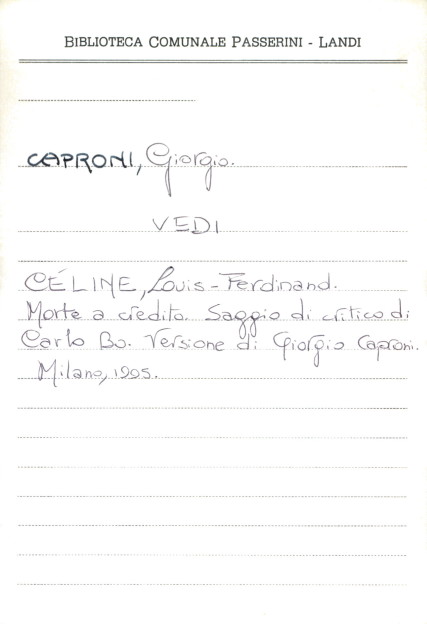 BIBLIOTECA COMUNALE PASSERINI - LANDI
CAPRONI, Giorgio.
VEDI
CÉLINE, Louis-Ferdinand.
Morte a credito. Saggio di critico di
Carlo Bo. Versione di Giorgio Caproni.
Milano, 1905.